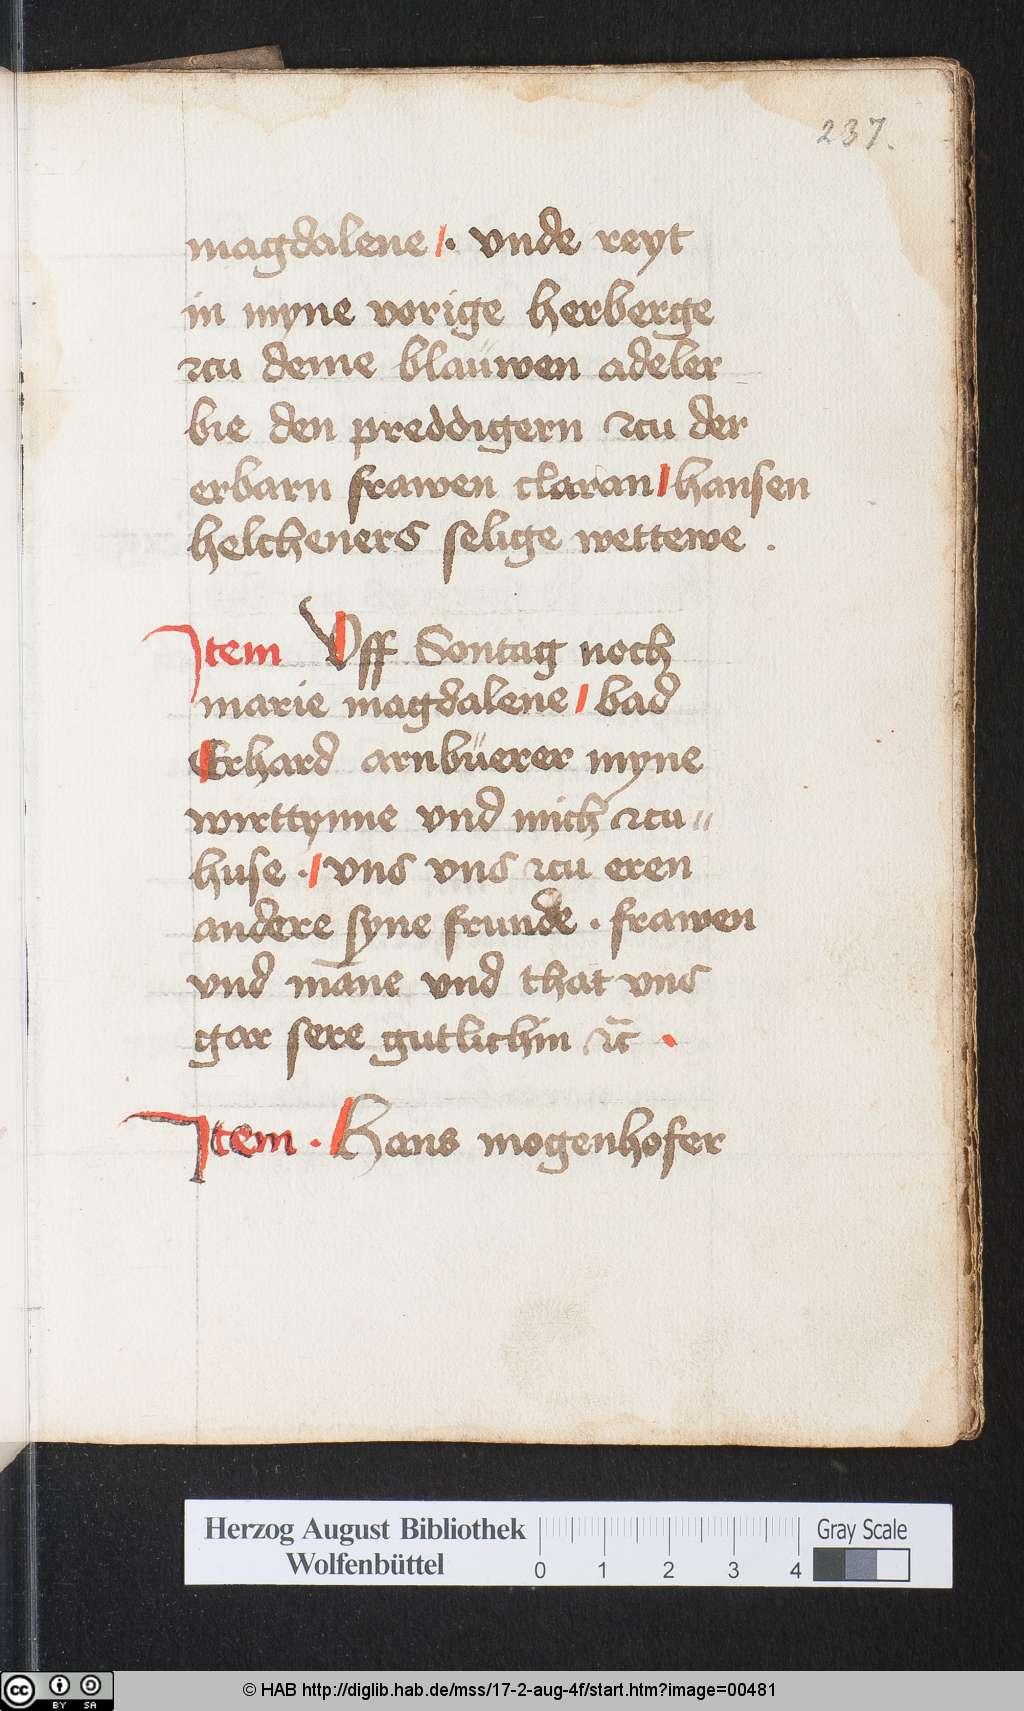 237.
magdalene /. vnde reyt
in myne vorige herberge
zcu deme blaüwen adeler
bie den preddigern zcu der
erbarn frawen claran / hansen
helcheners selige wettewe .
Item Vff Sontag noch
marie magdalene / bad
Erhard arnbüerer myne
wirttynne vnd mich zcu〃
huse . / vns vns zcu eren
andere syne frunde . frawen
vnd māne vnd that vns
gar sere gutlichin ꝛc̃ .
Item . Hans mogenhofer
Herzog August Bibliothek
Wolfenbüttel
0 1 2 3 4
Gray Scale
cc BY SA
© HAB http://diglib.hab.de/mss/17-2-aug-4f/start.htm?image=00481